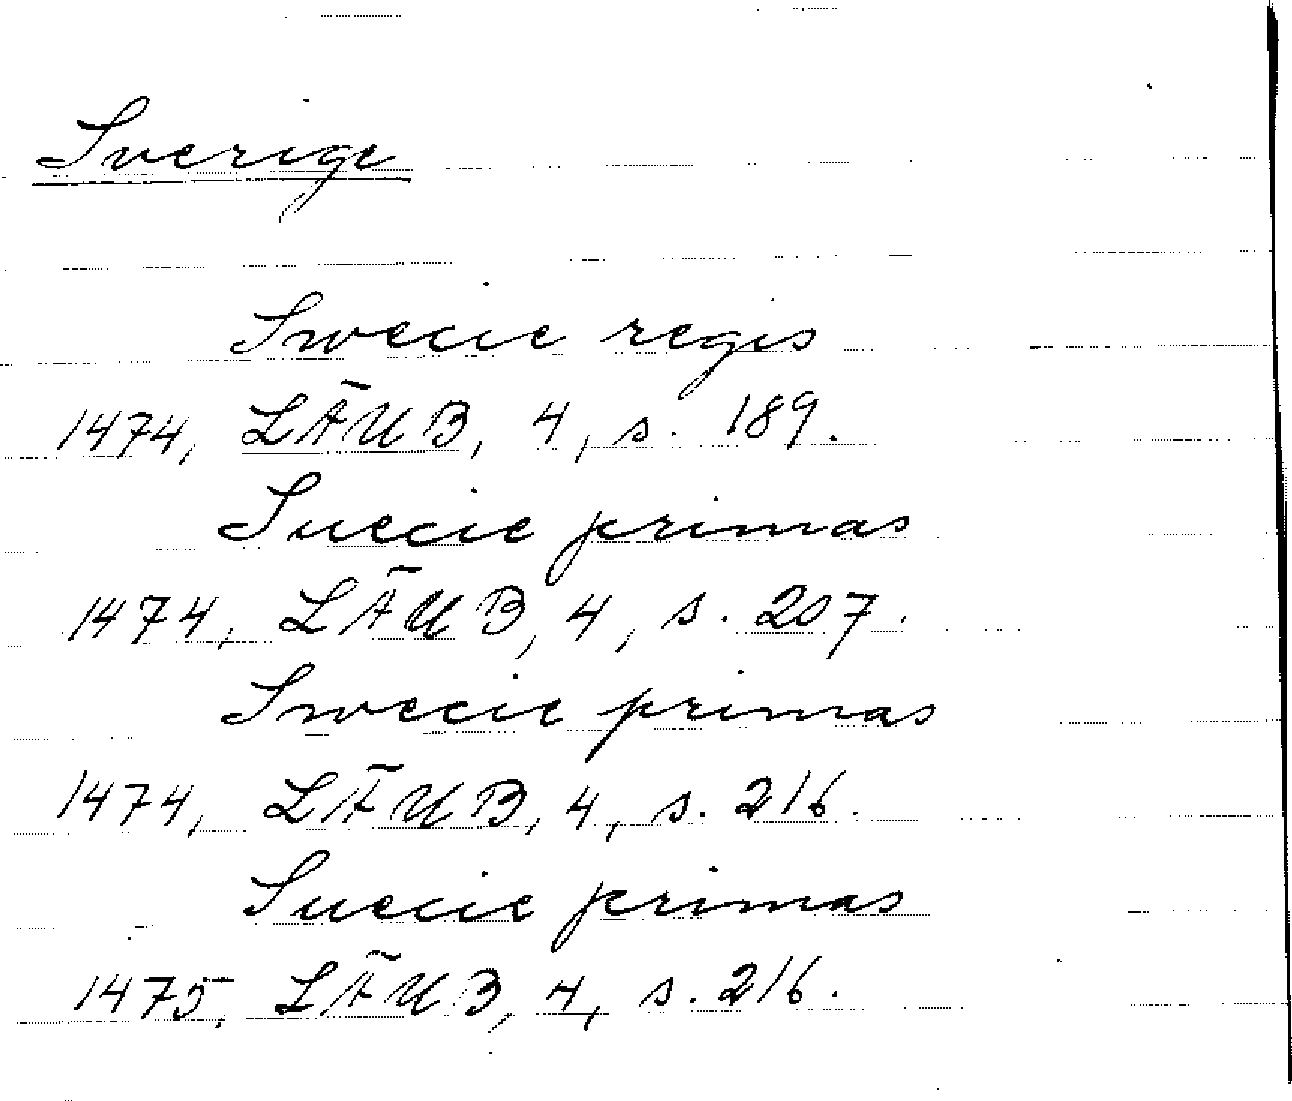 Sverige
Swecie regis
1474, LÄUB, 4, s. 189.
Suecie primas
1474, LÄUB, 4, s. 207.
Swecie primas
1474, LÄUB, 4, s. 216.
Suecie primas
1475, LÄUB, 4, s. 216.